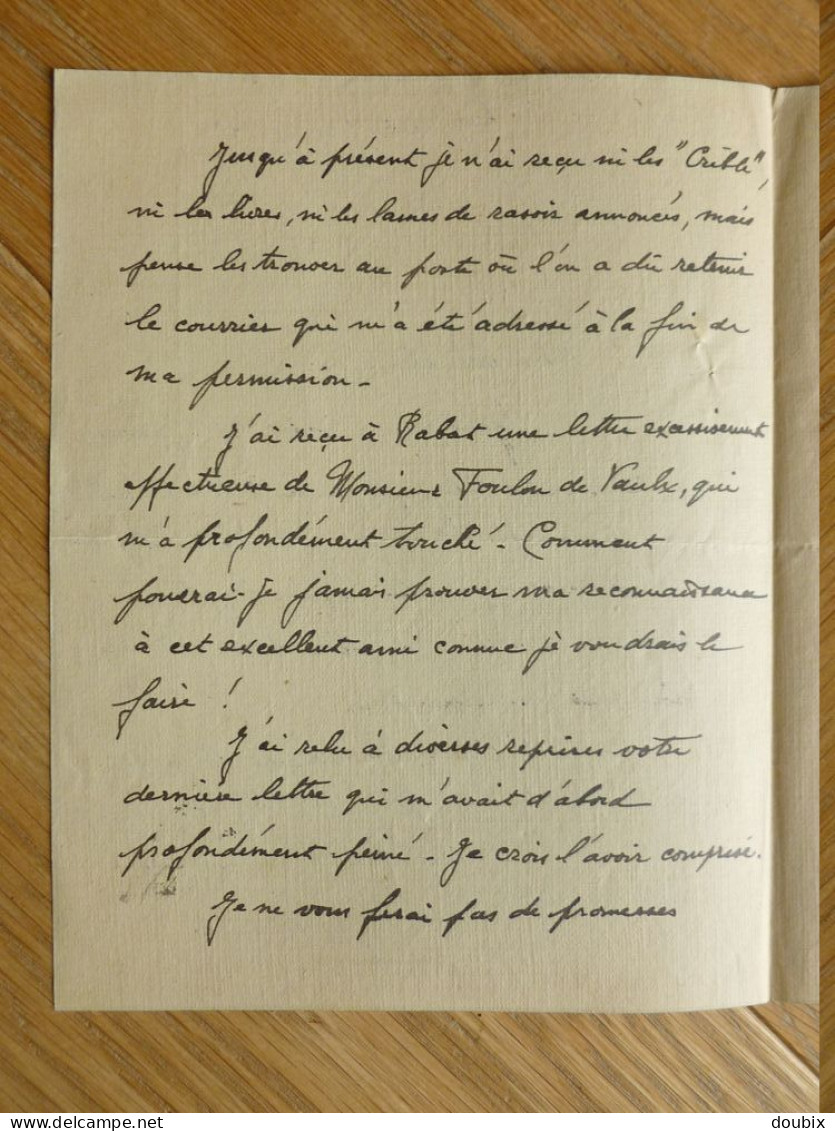 Jusqu'à présent je n'ai reçu ni les "Crible",
ni les livres, ni les lames de rasoir annoncés, mais
pense les trouver au poste où l'on a dû retenir
le courrier qui m'a été adressé à la fin de
ma permission -
J'ai reçu à Rabat une lettre excessivement
affectueuse de Monsieur Foulon de Vaulx, qui
m'a profondément touché - Comment
pourrai-je jamais prouver ma reconnaissance
à cet excellent ami comme je voudrais le
faire !
J'ai relu à diverses reprises votre
dernière lettre qui m'avait d'abord
profondément peiné - Je crois l'avoir comprise.
Je ne vous ferai pas de promesses
www.delcampe.net
doubix